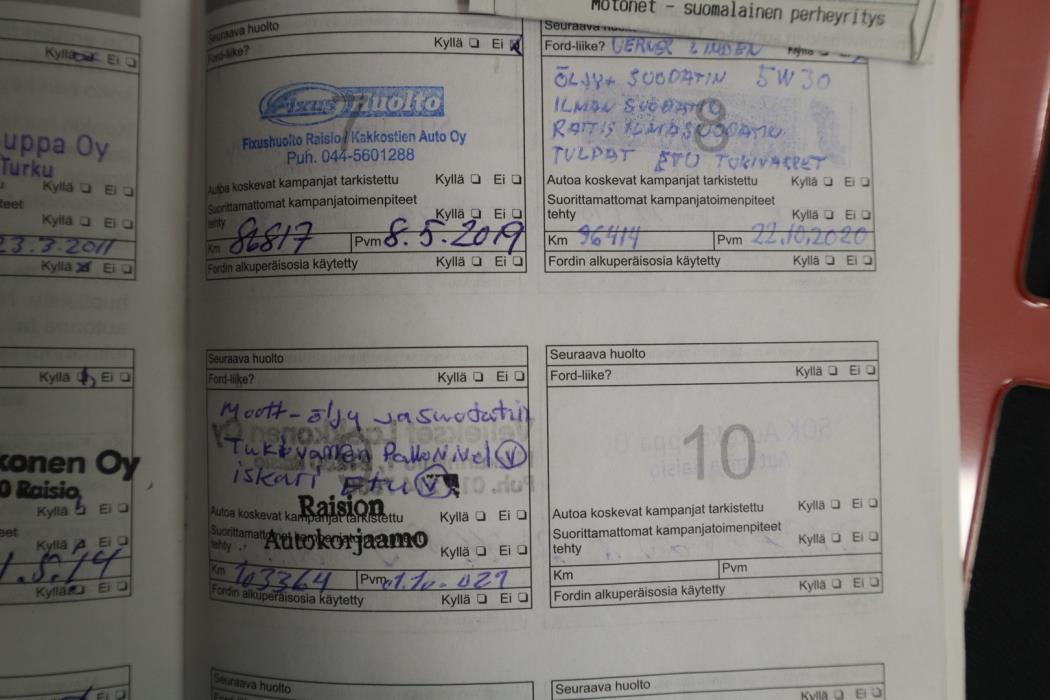 Motonet - suomalainen perheyritys
Kyllä Ei
uppa Oy
Turku
Kyllä Ei
teet
Kyllä Ei
23.3.2011
Kyllä Ei
Kyllä Ei
konen Oy
0 Raisio
Kyllä Ei
eet
Kyllä Ei
Kyllä Ei
Ei
Seuraava huolto
Ford-liike? Kyllä Ei
7
Fixus Huolto
Fixushuolto Raisio / Kakkostien Auto Oy
Puh. 044-5601288
Autoa koskevat kampanjat tarkistettu Kyllä Ei
Suorittamattomat kampanjatoimenpiteet
tehty Kyllä Ei
Km 86817 Pvm 8.5.2019
Fordin alkuperäisosia käytetty Kyllä Ei
Seuraava huolto
Ford-liike? VERNER LINDEN Kyllä
ÖLJY+ SUODATIN 5W30
ILMAN SUODATIN
8
RATTIS ILMASUODATIN
TULPAT ETU TUKIVARRET
Autoa koskevat kampanjat tarkistettu Kyllä Ei
Suorittamattomat kampanjatoimenpiteet
tehty Kyllä Ei
Km 96414 Pvm 22.10.2020
Fordin alkuperäisosia käytetty Kyllä Ei
Seuraava huolto
Ford-liike? Kyllä Ei
Moott-öljy ja suodatin
Tukivarren Pallonivel V
iskari Etu V
Raision
Autoa koskevat kampanjat tarkistettu Kyllä Ei
Suorittamattomat kampanjatoimenpiteet
Autokorjaamo
tehty Kyllä Ei
Km 103364 Pvm
Fordin alkuperäisosia käytetty Kyllä Ei
Seuraava huolto
Ford-liike? Kyllä Ei
10
Autoa koskevat kampanjat tarkistettu Kyllä Ei
Suorittamattomat kampanjatoimenpiteet
tehty Kyllä Ei
Km Pvm
Fordin alkuperäisosia käytetty Kyllä Ei
Seuraava huolto
Seuraava huolto
Kyllä Ei